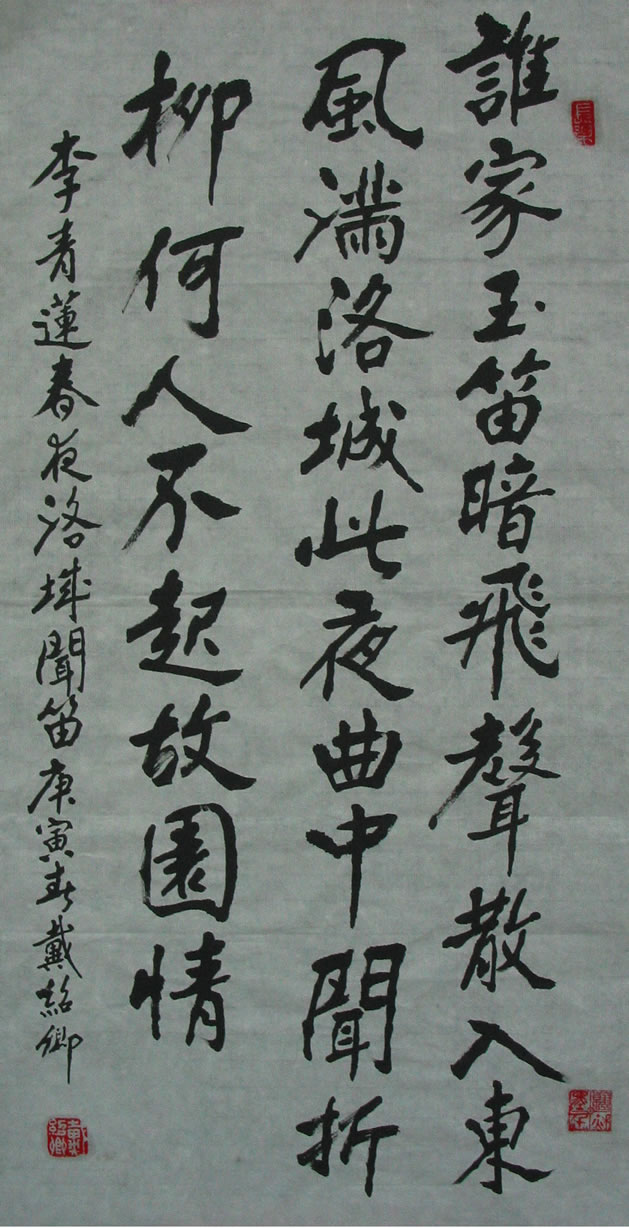 誰家玉笛暗飛聲散入東
風滿洛城此夜曲中聞折
柳何人不起故園情
李青蓮春夜洛城聞笛庚寅春戴紹卿
戴紹卿